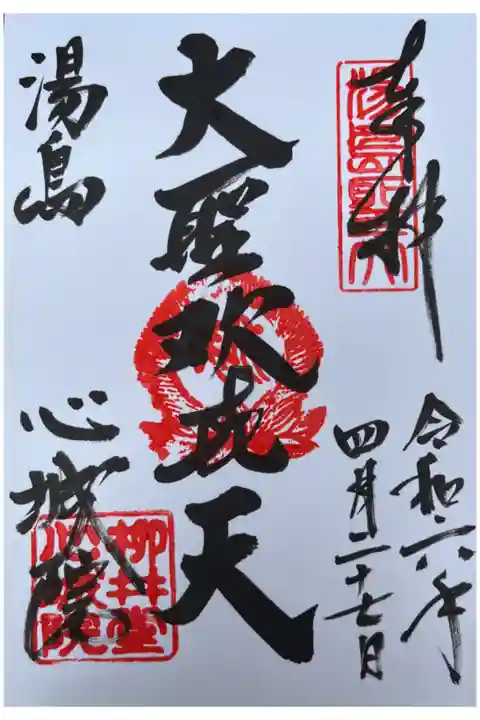 奉拝
令和六年
四月二十七日
大聖歓喜天
湯島
心城院
湯島聖天
柳井堂
心城院